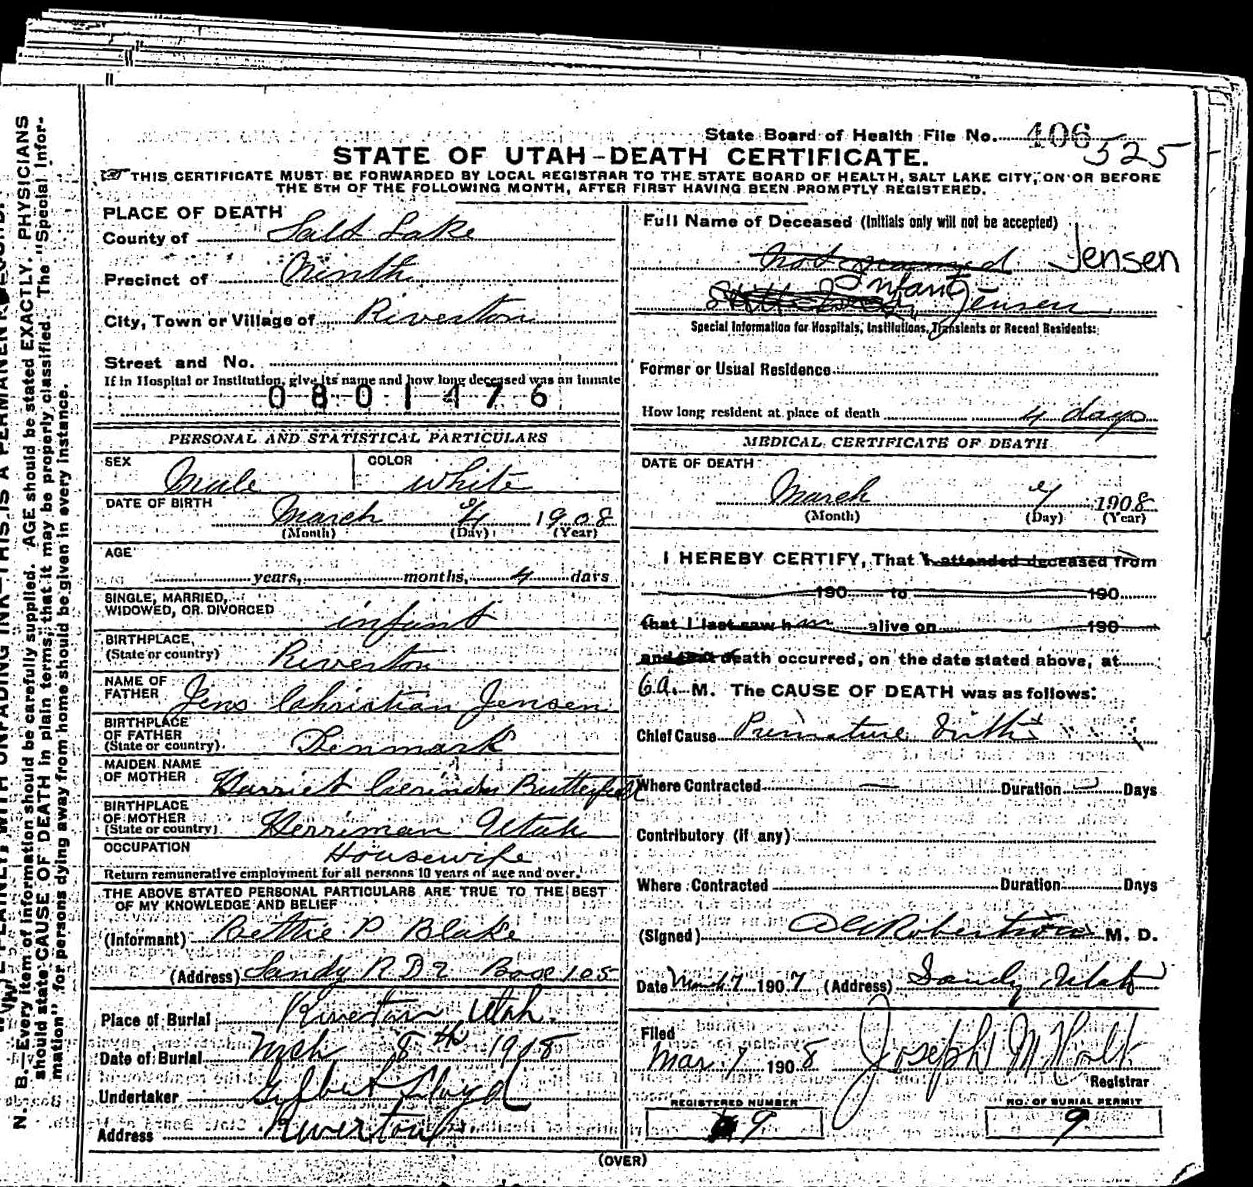 State Board of Health File No. 406 525
STATE OF UTAH-DEATH CERTIFICATE.
THIS CERTIFICATE MUST BE FORWARDED BY LOCAL REGISTRAR TO THE STATE BOARD OF HEALTH, SALT LAKE CITY, ON OR BEFORE
THE 5TH OF THE FOLLOWING MONTH, AFTER FIRST HAVING BEEN PROMPTLY REGISTERED.
PLACE OF DEATH
County of Salt Lake
Precinct of Ninth
City, Town or Village of Riverton
Street and No.
If in Hospital or Institution, give its name and how long deceased was an inmate
0801476
PERSONAL AND STATISTICAL PARTICULARS
SEX Male COLOR white
DATE OF BIRTH March 4 1908
(Month) (Day) (Year)
AGE
years, months, 4 days
SINGLE, MARRIED,
WIDOWED, OR DIVORCED infant
BIRTHPLACE,
(State or country) Riverton
NAME OF
FATHER Jens Christian Jensen
BIRTHPLACE
OF FATHER
(State or country) Denmark
MAIDEN NAME
OF MOTHER Harriet Butterfield
BIRTHPLACE
OF MOTHER
(State or country) Herriman Utah
OCCUPATION Housewife
Return remunerative employment for all persons 10 years of age and over.
THE ABOVE STATED PERSONAL PARTICULARS ARE TRUE TO THE BEST
OF MY KNOWLEDGE AND BELIEF
(Informant) Bettie P Blake
(Address) Sandy R D 2 Box 105
Place of Burial Riverton Utah.
Date of Burial Mch 8th 1908
Undertaker Gilbert Lloyd
Address Riverton
Full Name of Deceased (Initials only will not be accepted)
not named Jensen
Infant Jensen
Special Information for Hospitals, Institutions, Transients or Recent Residents:
Former or Usual Residence
How long resident at place of death 4 days
MEDICAL CERTIFICATE OF DEATH
DATE OF DEATH
March 7 1908
(Month) (Day) (Year)
I HEREBY CERTIFY, That I attended deceased from
190 to 190
that I last saw him alive on 190
and that death occurred, on the date stated above, at
6 a. M. The CAUSE OF DEATH was as follows:
Chief Cause Premature birth
Where Contracted — Duration — Days
Contributory (if any)
Where Contracted Duration Days
(Signed) Robertson M. D.
Date Mch 7 1907 (Address) Sandy Utah
Filed
Mar. 7 1908 Joseph M Holt
Registrar
REGISTERED NUMBER
9
NO. OF BURIAL PERMIT
9
(OVER)
N. B.—Every item of information should be carefully supplied. AGE should be stated EXACTLY. PHYSICIANS
should state CAUSE OF DEATH in plain terms, that it may be properly classified. The "Special Infor-
mation" for persons dying away from home should be given in every instance.